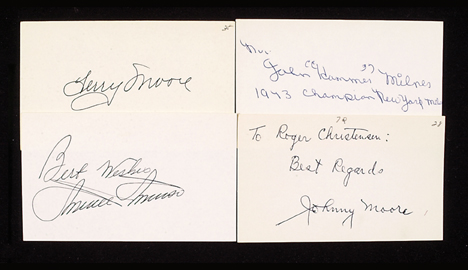 Terry Moore
Mr.
John "Hammer" Milner
1973 Champion New York Mets
Best Wishes
79
23
To Roger Christensen:
Best Regards
Johnny Moore